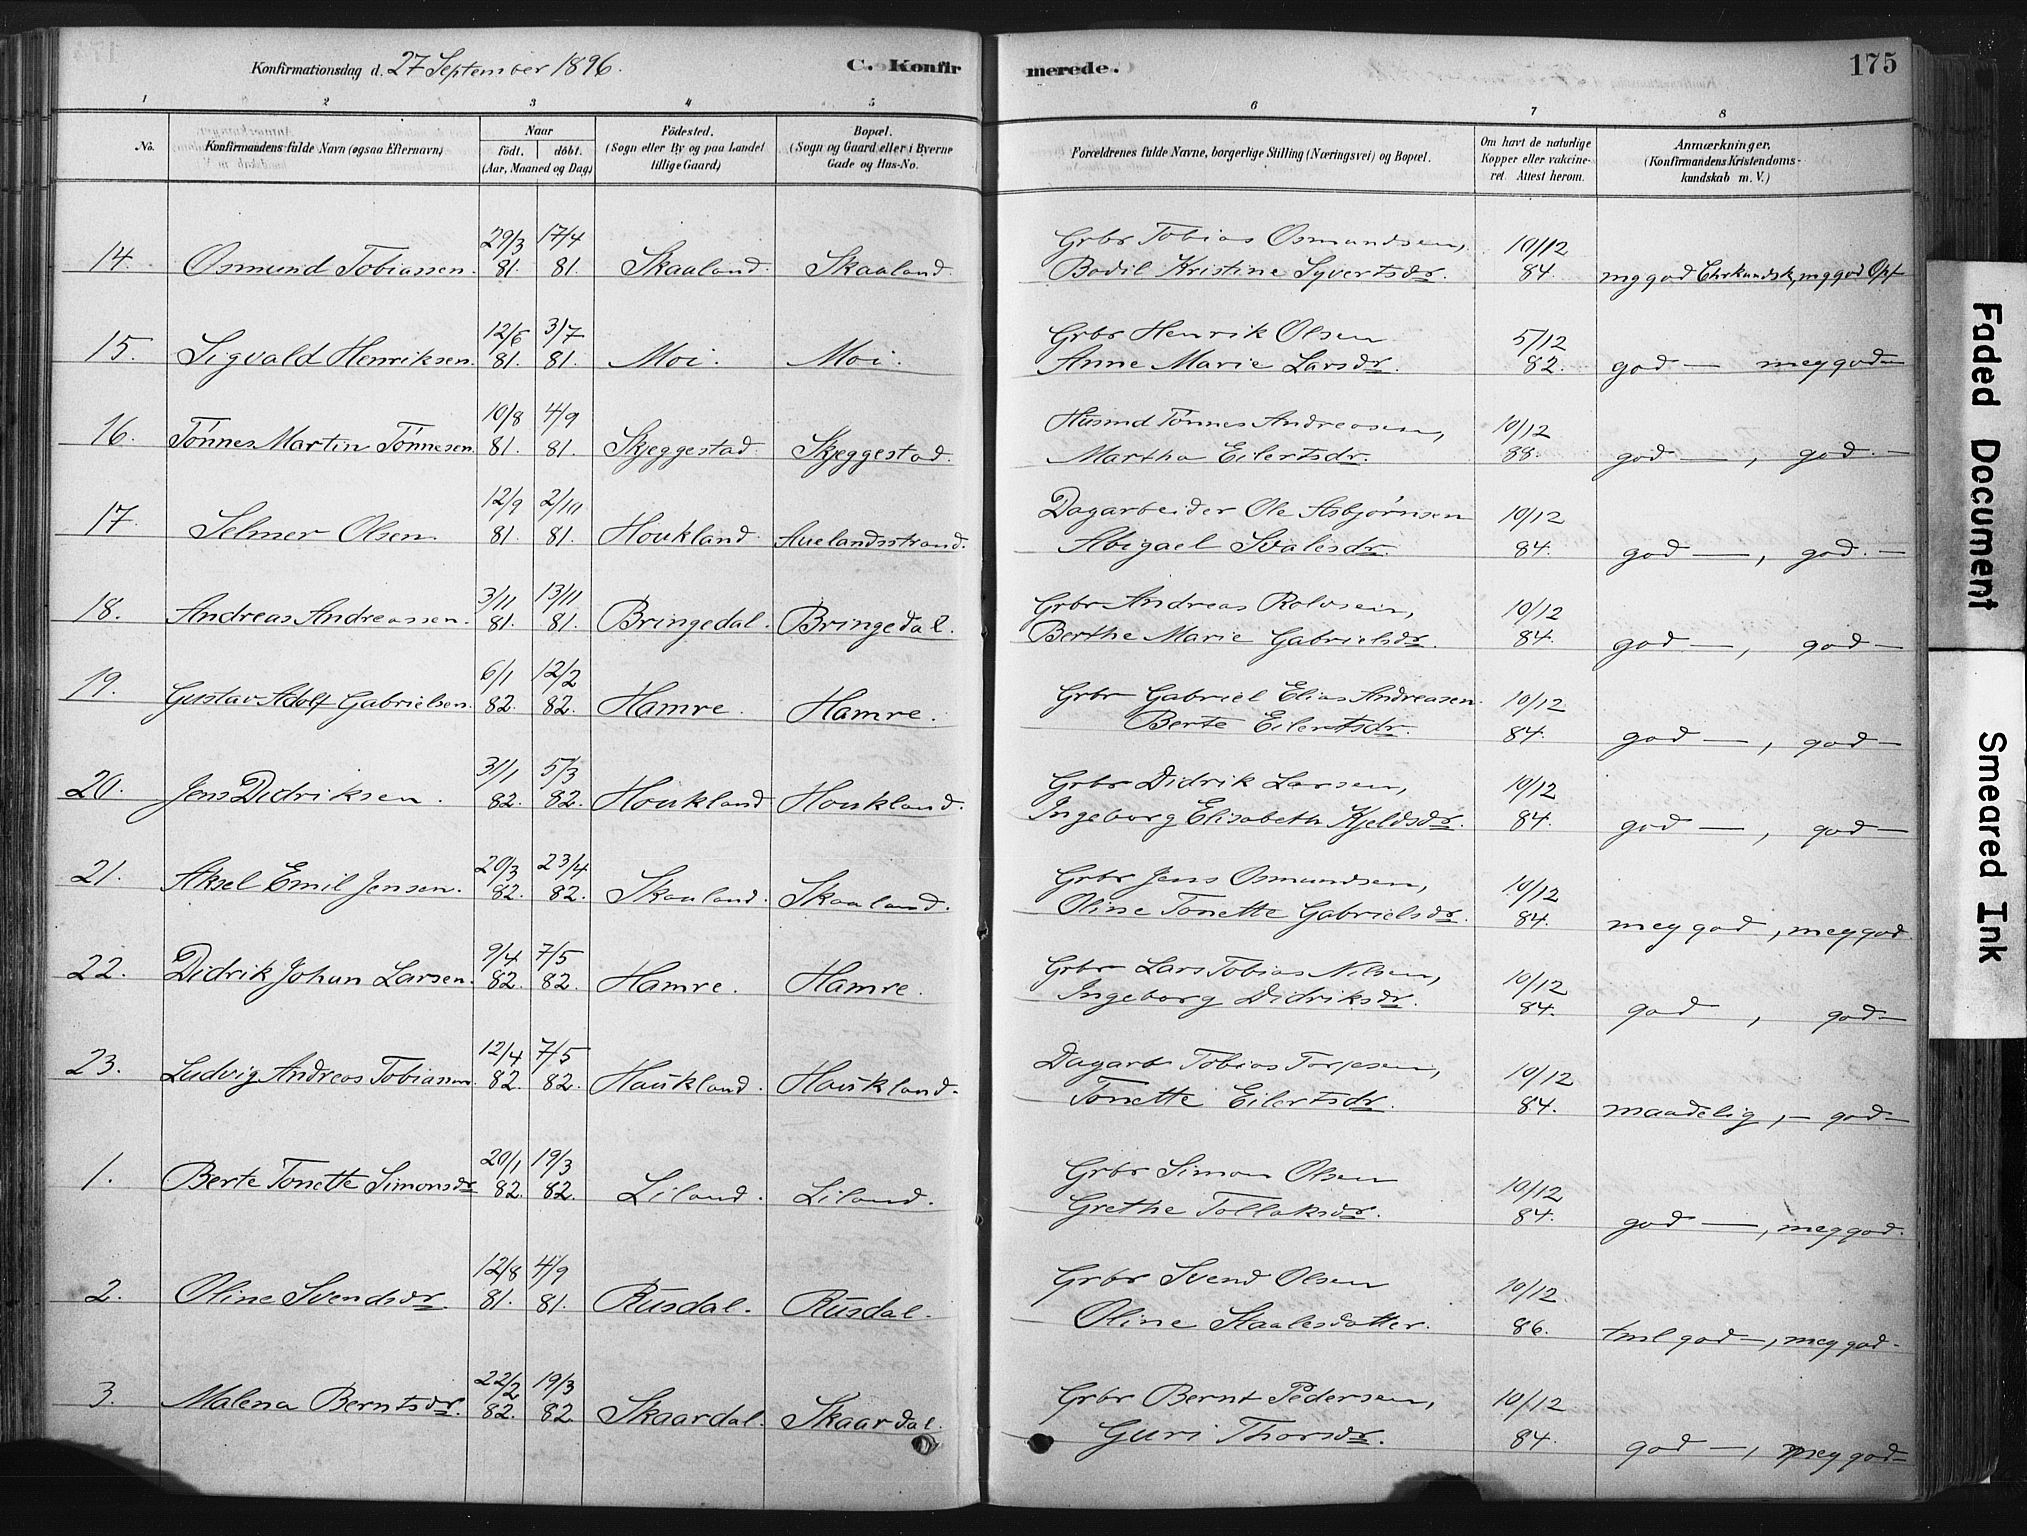 Konfirmationsdag d. 27 September 1896.
C. Konfir
merede.
175
1 2 3 4 5 6 7 8
No. Konfirmandens fulde Navn (ogsaa Efternavn) Naar født. døbt. (Aar, Maaned og Dag) Fødested. (Sogn eller By og paa Landet tillige Gaard) Bopæl. (Sogn og Gaard eller i Byerne Gade og Hus-No. Forældrenes fulde Navne, borgerlige Stilling (Næringsvei) og Bopæl. Om havt de naturlige Kopper eller vakcineret. Attest herom. Anmærkninger. (Konfirmandens Kristendomskundskab m. V.)
14. Osmund Tobiassen. 29/3 81. 17/4 81. Skaaland. Skaaland. Grbr Tobias Osmundsen, Bodil Kristine Syvertsdr. 10/12 84. mg god Chrkundsk, mg god Opf
15. Sigvald Henriksen. 12/6 81. 3/7 81. Moi. Moi. Grbr Henrik Olsen Anne Marie Larsdr. 5/12 82. god — meg god —
16. Tönnes Martin Tönnesen. 10/8 81. 4/9 81. Skjeggestad. Skjeggestad. Husmd Tönnes Andreasen, Martha Eilertsdr. 10/12 88. god —, god. —
17. Selmer Olsen. 12/9 81. 2/10 81. Houkland. Auelandsstrand. Dagarbeider Ole Asbjørnsen Abigael Svalesdr. 10/12 84. god —, god. —
18. Andreas Andreassen. 3/11 81. 13/11 81. Bringedal. Bringedal. Grbr Andreas Rolvsen, Berthe Marie Gabrielsdr. 10/12 84. god —, god —
19. Gustav Adolf Gabrielsen. 6/1 82. 12/2 82. Hamre. Hamre. Grbr Gabriel Elias Andreasen. Berte Eilertsdr. 10/12 84. god —, god —
20. Jens Didriksen. 31/1 82. 5/3 82. Houkland Houkland. Grbr Didrik Larsen, Ingeborg Elisabeth Kjeldsdr. 10/12 84. god —, god —
21. Aksel Emil Jensen. 20/3 82. 23/4 82. Skaaland. Skaaland. Grbr Jens Osmundsen, Oline Tonette Gabrielsdr. 10/12 84. meg god, meg god
22. Didrik Johan Larsen. 9/4 82. 7/5 82. Hamre. Hamre. Grbr Lars Tobias Nilsen, Ingeborg Didriksdr. 10/12 84. god, god —
23. Ludvig Andreas Tobiassen. 12/4 82. 7/5 82. Haukland. Haukland. Dagarb Tobias Torjesen, Tonette Eilertsdr. 10/12 84. maadelig, — god —
1. Berte Tonette Simonsdr 20/1 82. 19/3 82. Liland. Liland. Grbr Simon Olsen Grethe Tollaksdr. 10/12 84. god —, meg god.
2. Oline Svendsdr 12/8 81. 4/9 81. Rusdal. Rusdal. Grbr Svend Olsen Oline Staalesdatter. 10/12. 86. tml god —, meg god —
3. Malena Berntsdr. 22/2 82. 19/3 82. Skaardal. Skaardal. Grbr Bernt Pedersen, Guri Thorsdr. 10/12 84. god —, meg god —
Faded Document
Smeared Ink